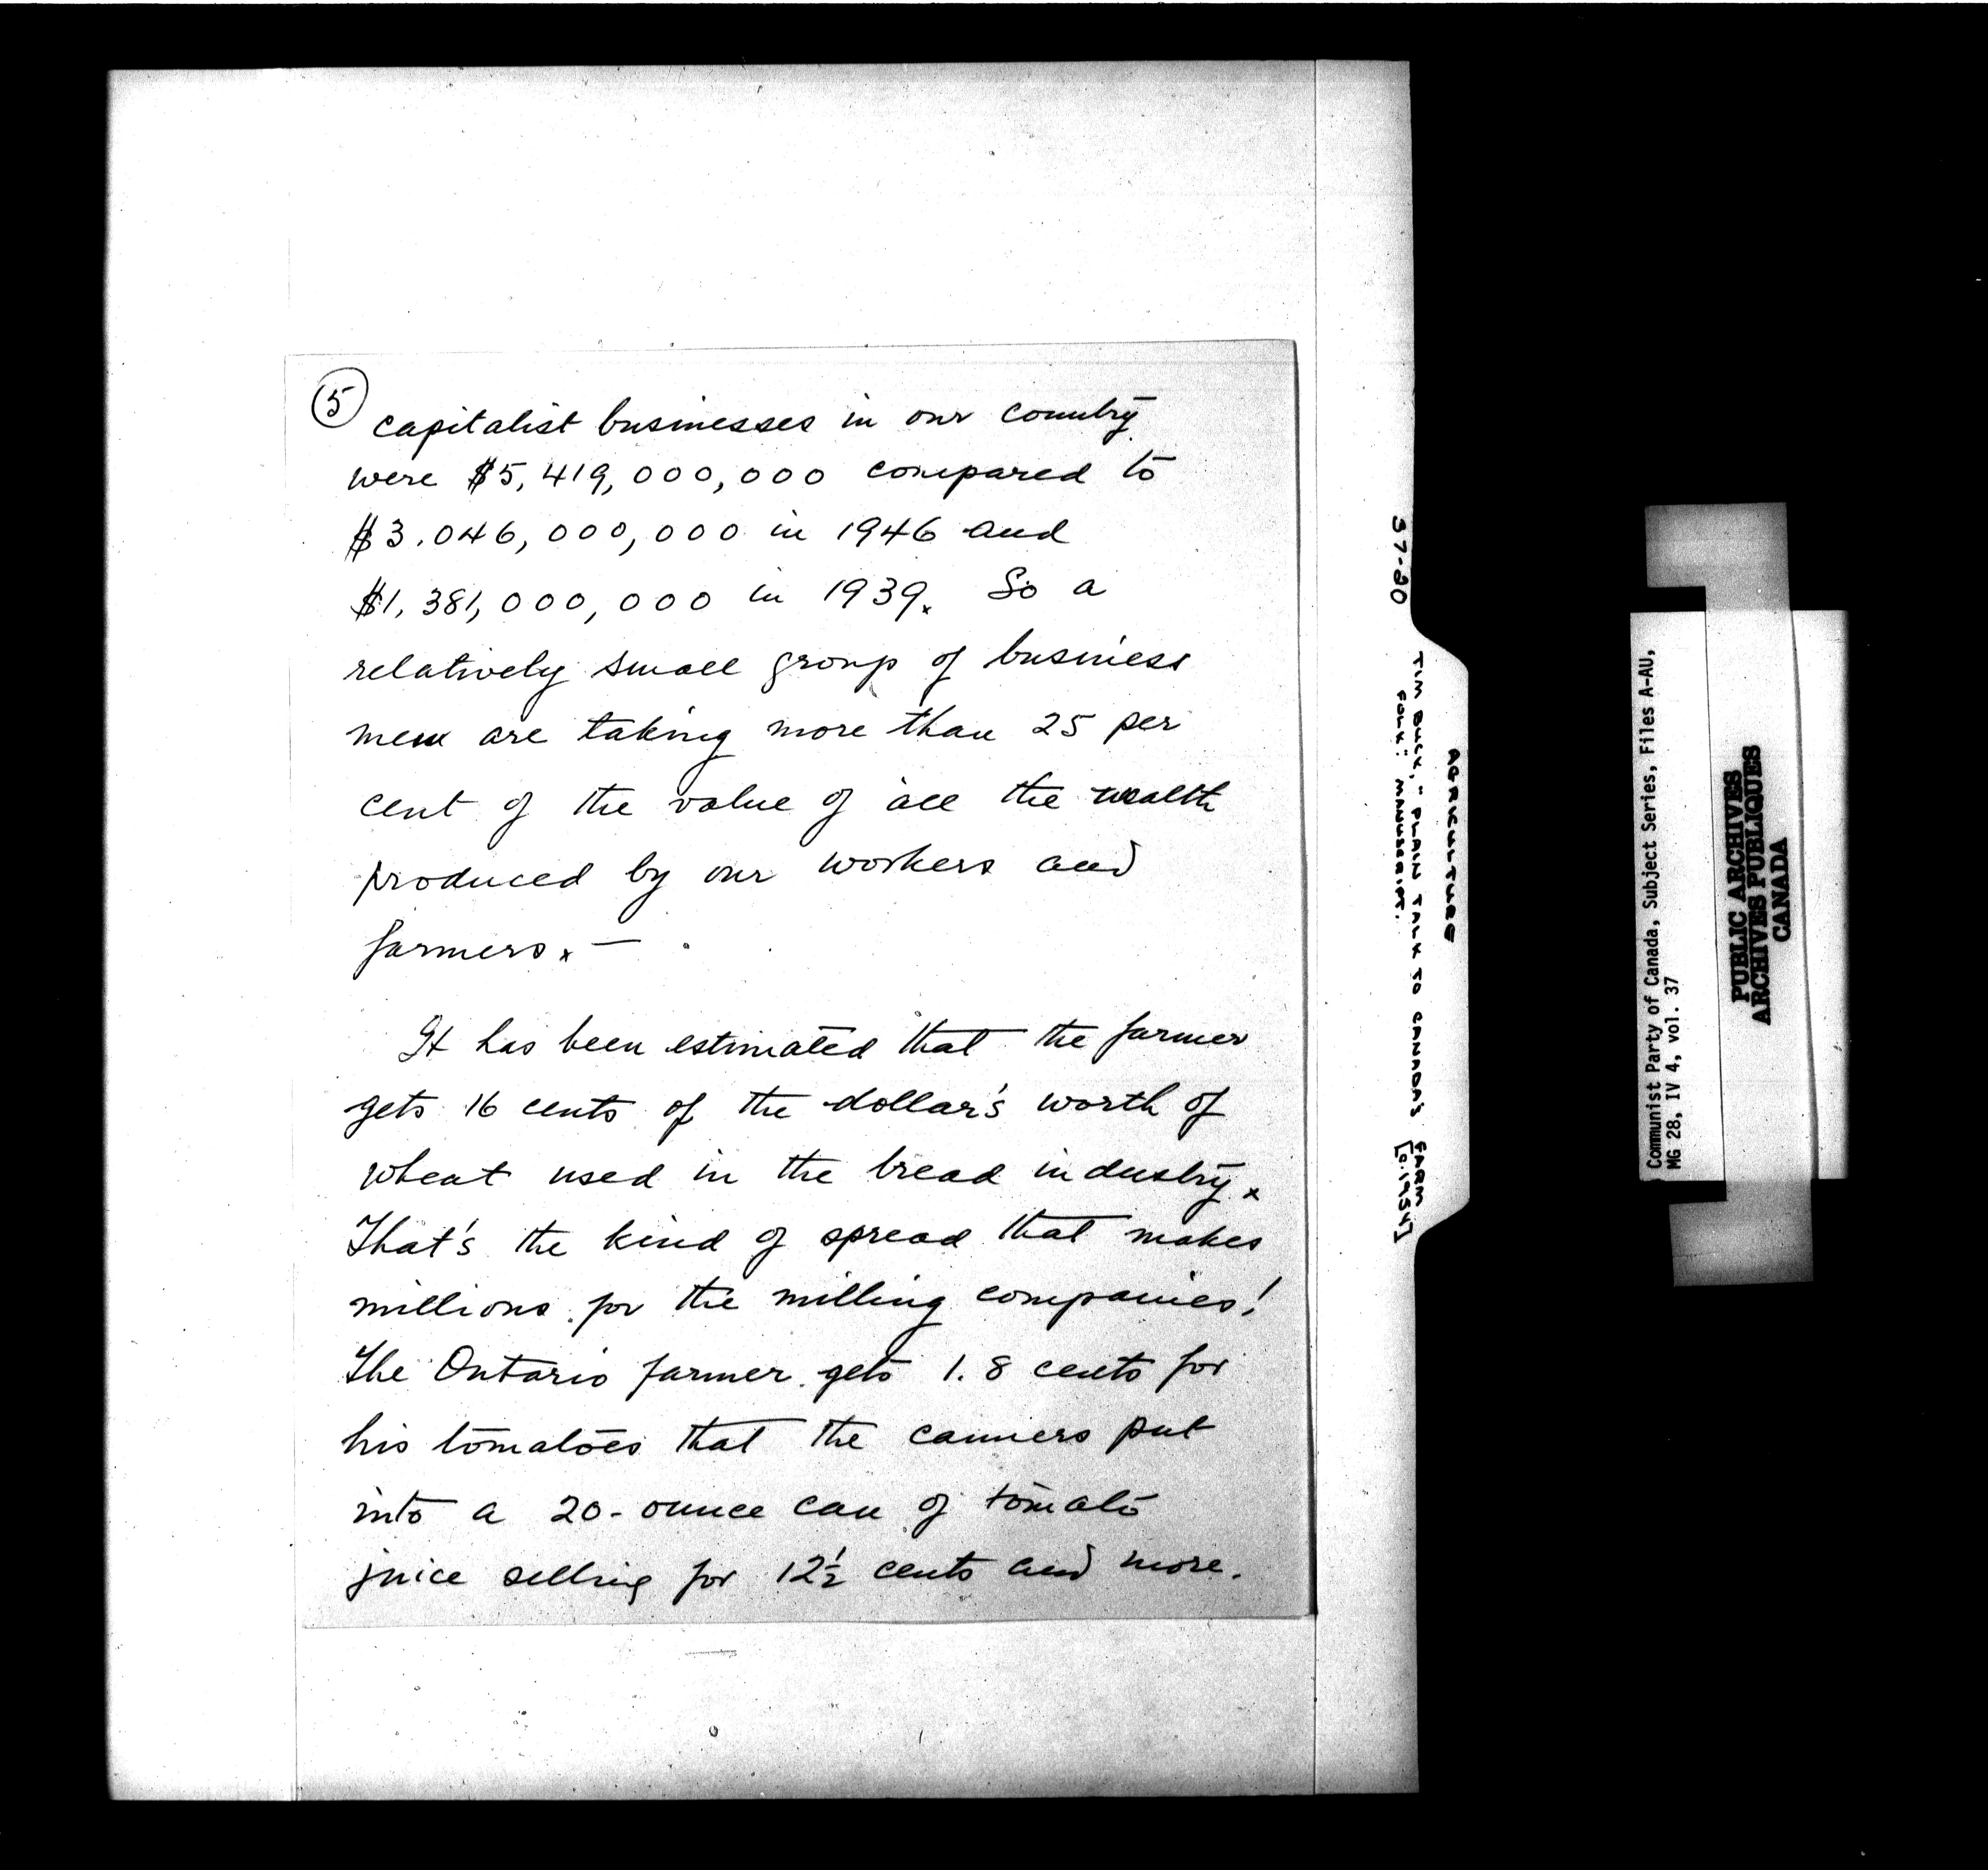 5
capitalist businesses in our country
were $5,419,000,000 compared to
$3.046,000,000 in 1946 and
$1,381,000,000 in 1939x So a
relatively small group of business
men are taking more than 25 per
cent of the value of all the wealth
produced by our workers and
farmersx —
It has been estimated that the farmer
gets 16 cents of the dollar's worth of
wheat used in the bread industryx
That's the kind of spread that makes
millions for the milling companies!
The Ontario farmer gets 1.8 cents for
his tomatoes that the canners put
into a 20-ounce can of tomato
juice selling for 12½ cents and more.
37-20
AGRICULTURE
TIM BUCK, "PLAIN TALK TO CANADA'S FARM
FOLK: MANUSCRIPT. [c.1954]
Communist Party of Canada, Subject Series, Files A-AU,
MG 28, IV 4, vol. 37
PUBLIC ARCHIVES
ARCHIVES PUBLIQUES
CANADA